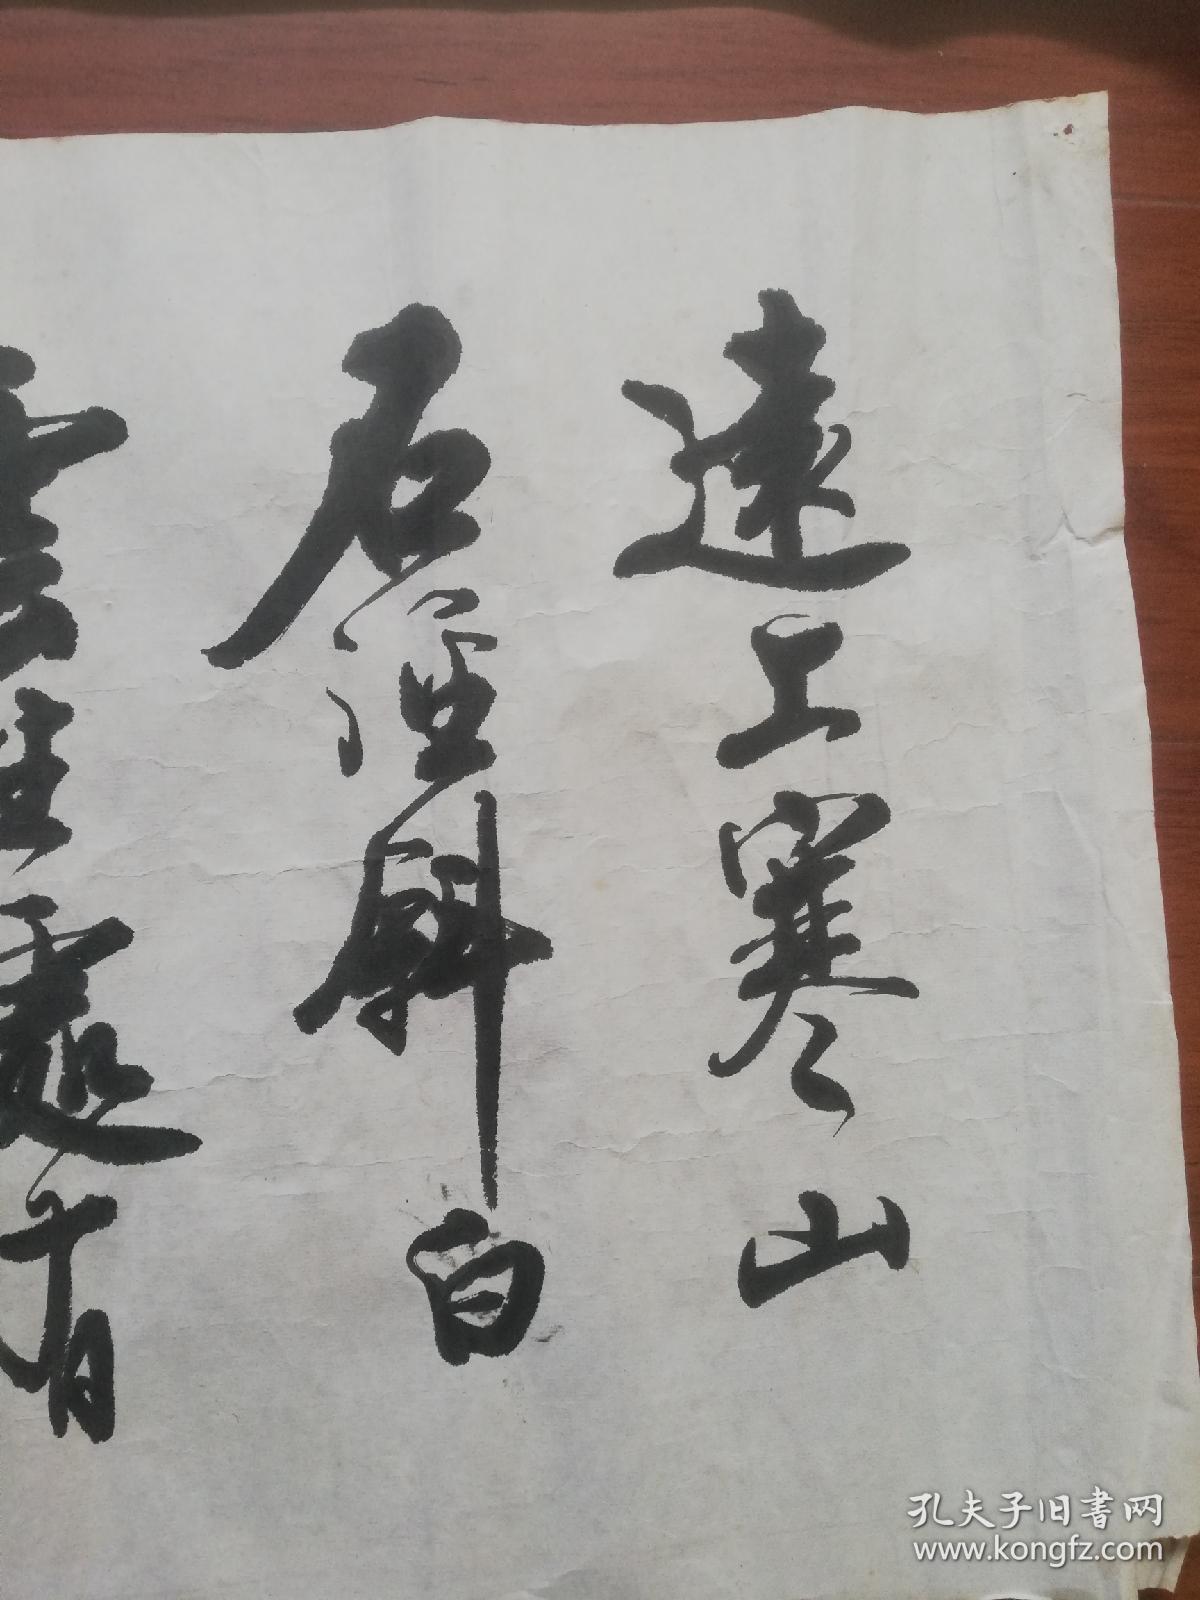 遠上寒山
石徑斜白
雲生處有
孔夫子旧書网
www.kongfz.com